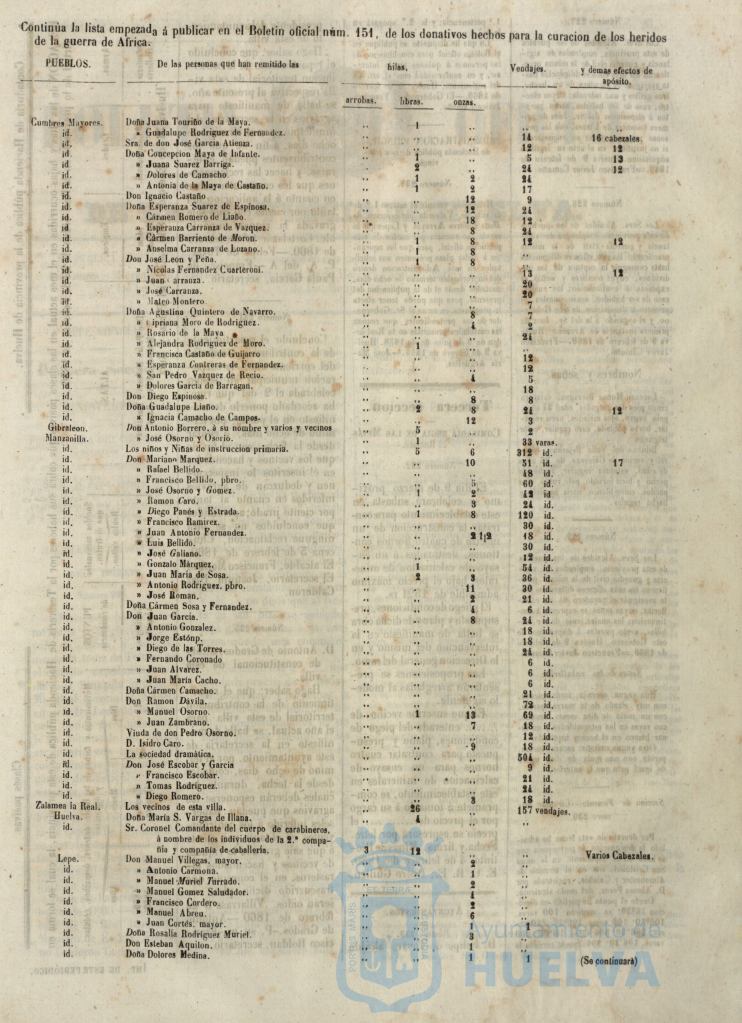 Continúa la lista empezada á publicar en el Boletin oficial núm. 151, de los donativos hechos para la curacion de los heridos
de la guerra de Africa.
PUEBLOS. De las personas que han remitido las hilas. Vendajes. y demas efectos de
apósito.
arrobas. libras. onzas.
Cumbres Mayores. Doña Juana Touriño de la Maya. .. 1 .. .. ..
id. » Guadalupe Rodriguez de Fernandez. .. .. .. 14 16 cabezales.
id. Sra. de don José Garcia Atienza. .. .. .. 12 12
id. Doña Concepcion Maya de Infante. .. 1 .. 5 13
id. » Juana Suarez Barriga. .. 2 .. 24 12
id. » Dolores de Camacho .. 1 2 24
id. » Antonia de la Maya de Castaño. .. 1 2 17
id. Don Ignacio Castaño .. .. 12 9
id. Doña Esperanza Suarez de Espinosa. .. .. 12 24
id. » Cármen Romero de Liaño. .. .. 18 12
id. » Esperanza Carranza de Vazquez. .. .. 8 24
id. » Cármen Barriento de Moron. .. 1 8 12 12
id. » Anselma Carranza de Lozano. .. 1 8 ..
id. Don José Leon y Peña. .. 1 8 ..
id. » Nicolas Fernandez Cuarteroni. .. .. .. 13 12
id. » Juan Carranza. .. .. .. 20
id. » José Carranza. .. .. .. 20
id. » Mateo Montero .. .. .. 7
id. Doña Agustina Quintero de Navarro. .. .. 8 7
id. » Cipriana Moro de Rodriguez. .. .. 4 2
id. » Rosario de la Maya .. .. .. 24
id. » Alejandra Rodriguez de Moro. .. 1 .. ..
id. » Francisca Castaño de Guijarro .. .. .. 12
id. » Esperanza Contreras de Fernandez. .. .. .. 12
id. » San Pedro Vazquez de Recio. .. .. 4 5
id. » Dolores Garcia de Barragan. .. .. .. 18
id. Don Diego Espinosa. .. .. 8 8
id. Doña Guadalupe Liaño. .. 2 8 24 12
id. » Ignacia Camacho de Campos. .. .. 12 3
Gibraleon. Don Antonio Borrero, á su nombre y varios y vecinos .. 5 .. 2
Manzanilla. » José Osorno y Osorio. .. 1 .. 33 varas.
id. Los niños y Niñas de instruccion primaria. .. 5 6 312 id.
id. Don Mariano Marquez. .. .. 10 51 id. 17
id. » Rafael Bellido. .. .. .. 48 id.
id. » Francisco Bellido, pbro. .. .. 5 60 id.
id. » José Osorno y Gomez. .. 1 2 42 id.
id. » Ramon Caro. .. .. 3 24 id.
id. » Diego Panés y Estrada. .. 1 8 120 id.
id. » Francisco Ramirez. .. .. .. 30 id.
id. » Juan Antonio Fernandez. .. .. 2 1|2 48 id.
id. » Luis Bellido. .. .. .. 30 id.
id. » José Galiano. .. .. .. 12 id.
id. » Gonzalo Márquez. .. 1 .. 54 id.
id. » Juan María de Sosa. .. 2 3 36 id.
id. » Antonio Rodriguez, pbro. .. .. 11 30 id.
id. » José Roman. .. .. 2 21 id.
id. Doña Cármen Sosa y Fernandez. .. .. 4 6 id.
id. Don Juan Garcia. .. .. 8 24 id.
id. » Antonio Gonzalez. .. .. .. 18 id.
id. » Jorge Estónp. .. .. .. 18 id.
id. » Diego de las Torres. .. .. .. 24 id.
id. » Fernando Coronado .. .. .. 6 id.
id. » Juan Alvarez. .. .. .. 6 id.
id. » Juan María Cacho. .. .. .. 6 id.
id. Doña Cármen Camacho. .. .. .. 21 id.
id. Don Ramon Dávila. .. .. .. 72 id.
id. » Manuel Osorno. .. 1 13 69 id.
id. » Juan Zambrano. .. .. 7 18 id.
id. Viuda de don Pedro Osorno. .. .. .. 12 id.
id. D. Isidro Caro. .. .. 9 18 id.
id. La sociedad dramática. .. .. .. 504 id.
id. Don José Escobar y Garcia .. .. .. 9 id.
id. » Francisco Escobar. .. .. .. 21 id.
id. » Tomas Rodriguez. .. .. .. 24 id.
id. » Diego Romero. .. .. 3 18 id.
Zalamea la Real. Los vecinos de esta villa. .. 26 .. 157 vendajes.
Huelva. Doña María S. Vargas de Illana. .. 4 .. ..
id. Sr. Coronel Comandante del cuerpo de carabineros,
á nombre de los individuos de la 2.ª compa-
ñia y compañia de caballeria. 3 12 .. .. Varios Cabezales.
Lepe. Don Manuel Villegas, mayor. .. .. 2
id. » Antonio Carmona. .. .. 1
id. » Manuel Muriel Turrado. .. .. 2
id. » Manuel Gomez Saludador. .. .. 4
id. » Francisco Cordero. .. .. 2
id. » Manuel Abreu. .. .. 6
id. » Juan Cortés, mayor. .. .. 1 1
id. Doña Rosalía Rodriguez Muriel. .. .. 3
id. Don Esteban Aquilon. .. .. 1
id. Doña Dolores Medina. .. .. 1 1 (Se continuará)
Ayuntamiento de
HUELVA